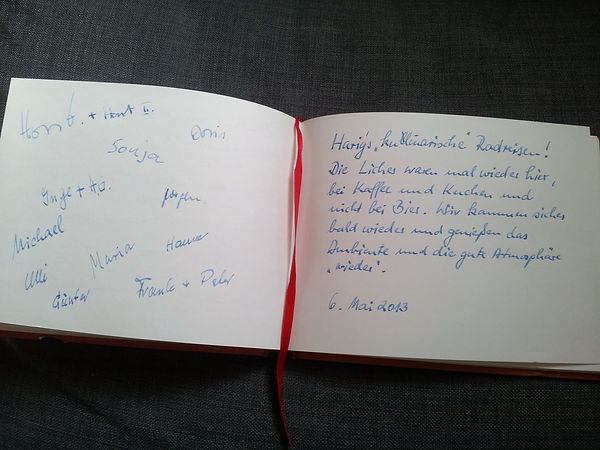 Horst + Horst II.
Doris
Sonja
Inge + HJ.
Jürgen
Michael
Hanne
Maria
Ulli
Günter
Frank + Peter
Harig's „kullinarische" Radreisen!
Die Licher waren mal wieder hier,
bei Kaffee und Kuchen und
nicht bei Bier. Wir kommen sicher
bald wieder und genießen das
Ambiente und die gute Atmosphäre
„wieder".
6. Mai 2013